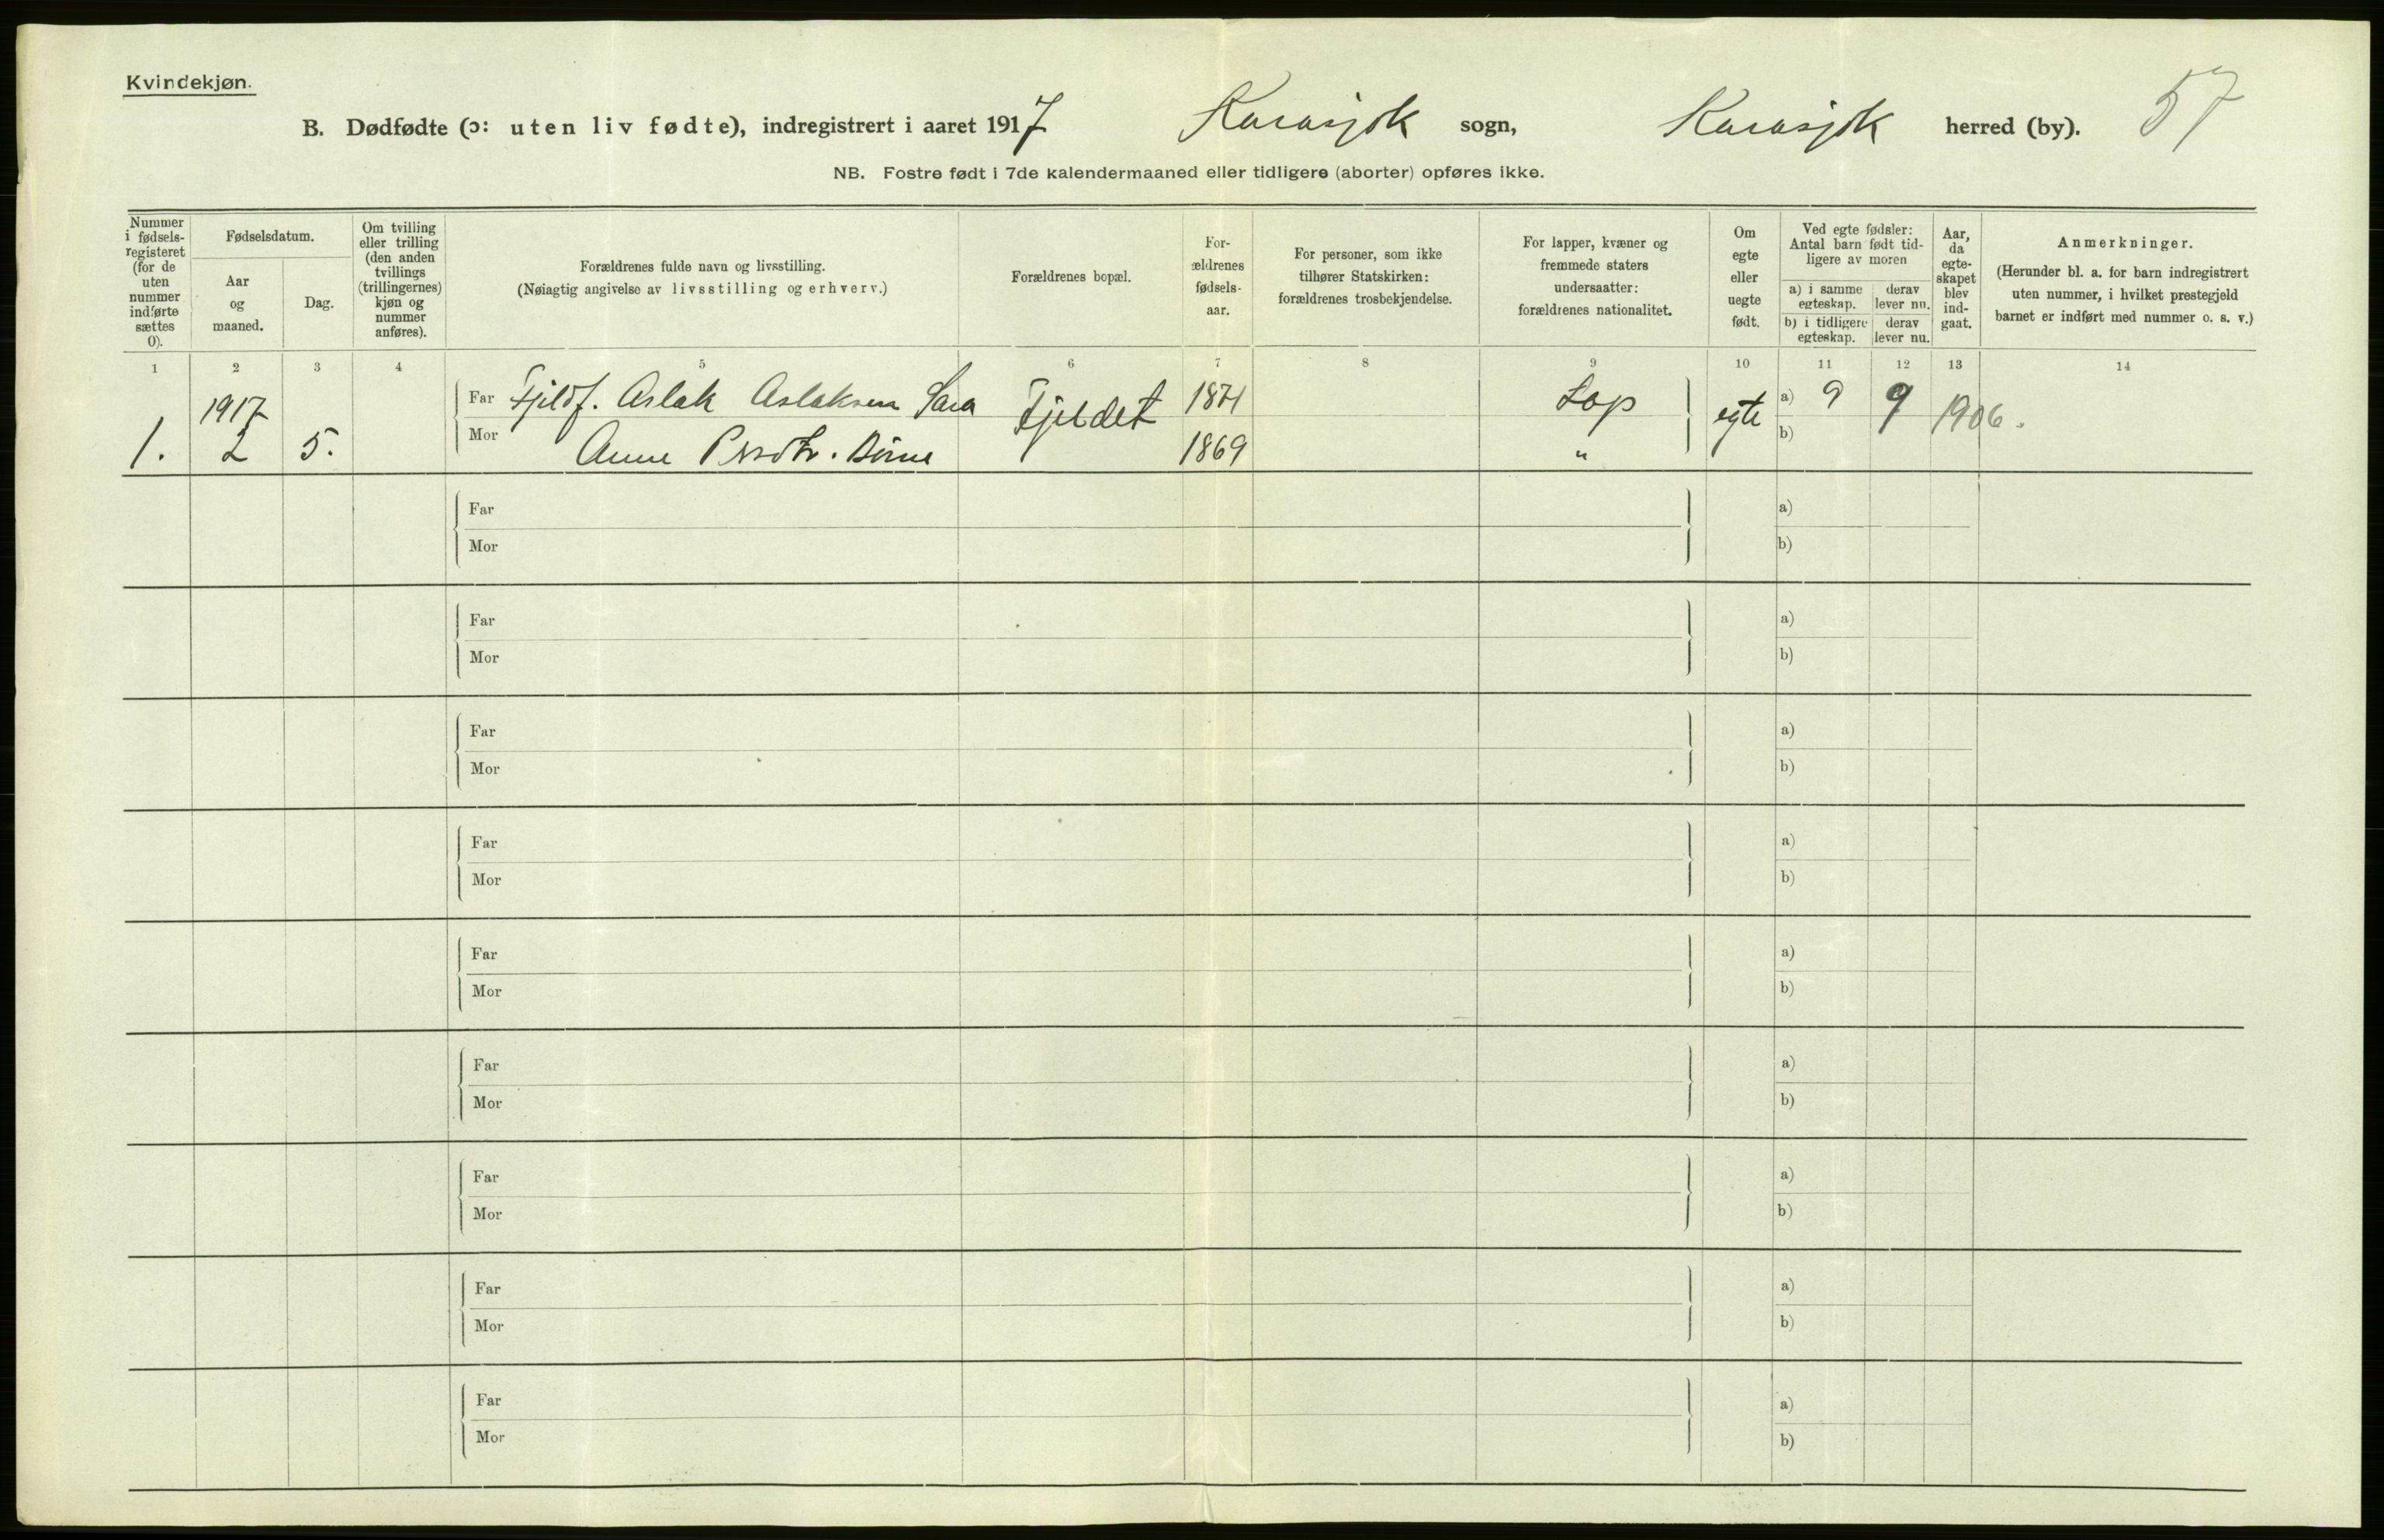 Kvindekjøn.
B. Dødfødte (ɔ: uten liv fødte), indregistrert i aaret 1917 Karasjok sogn, Karasjok herred (by). 57
NB. Fostre født i 7de kalendermaaned eller tidligere (aborter) opføres ikke.
Nummer
i fødsels-
registeret
(for de
uten
nummer
indførte
sættes
0).
Fødselsdatum.
Aar
og
maaned.
Dag.
Om tvilling
eller trilling
(den anden
tvillings
(trillingernes)
kjøn og
nummer
anføres).
Forældrenes fulde navn og livsstilling.
(Nøiagtig angivelse av livsstilling og erhverv.)
Forældrenes bopæl.
For-
ældrenes
fødsels-
aar.
For personer, som ikke
tilhører Statskirken:
forældrenes trosbekjendelse.
For lapper, kvæner og
fremmede staters
undersaatter:
forældrenes nationalitet.
Om
egte
eller
uegte
født.
Ved egte fødsler:
Antal barn født tid-
ligere av moren
a) i samme
egteskap.
derav
lever nu.
b) i tidligere
egteskap.
derav
lever nu.
Aar,
da
egte-
skapet
blev
ind-
gaat.
Anmerkninger.
(Herunder bl. a. for barn indregistrert
uten nummer, i hvilket prestegjeld
barnet er indført med nummer o. s. v.)
1 2 3 4 5 6 7 8 9 10 11 12 13 14
Far Fjeldf. Aslak Aslaksen Sara Fjeldet 1871 Lap egte a) 9 9 1906.
1. 1917 2 5.
Mor Anne 1869 " b)
Far a)
Mor b)
Far a)
Mor b)
Far a)
Mor b)
Far a)
Mor b)
Far a)
Mor b)
Far a)
Mor b)
Far a)
Mor b)
Far a)
Mor b)
Far a)
Mor b)